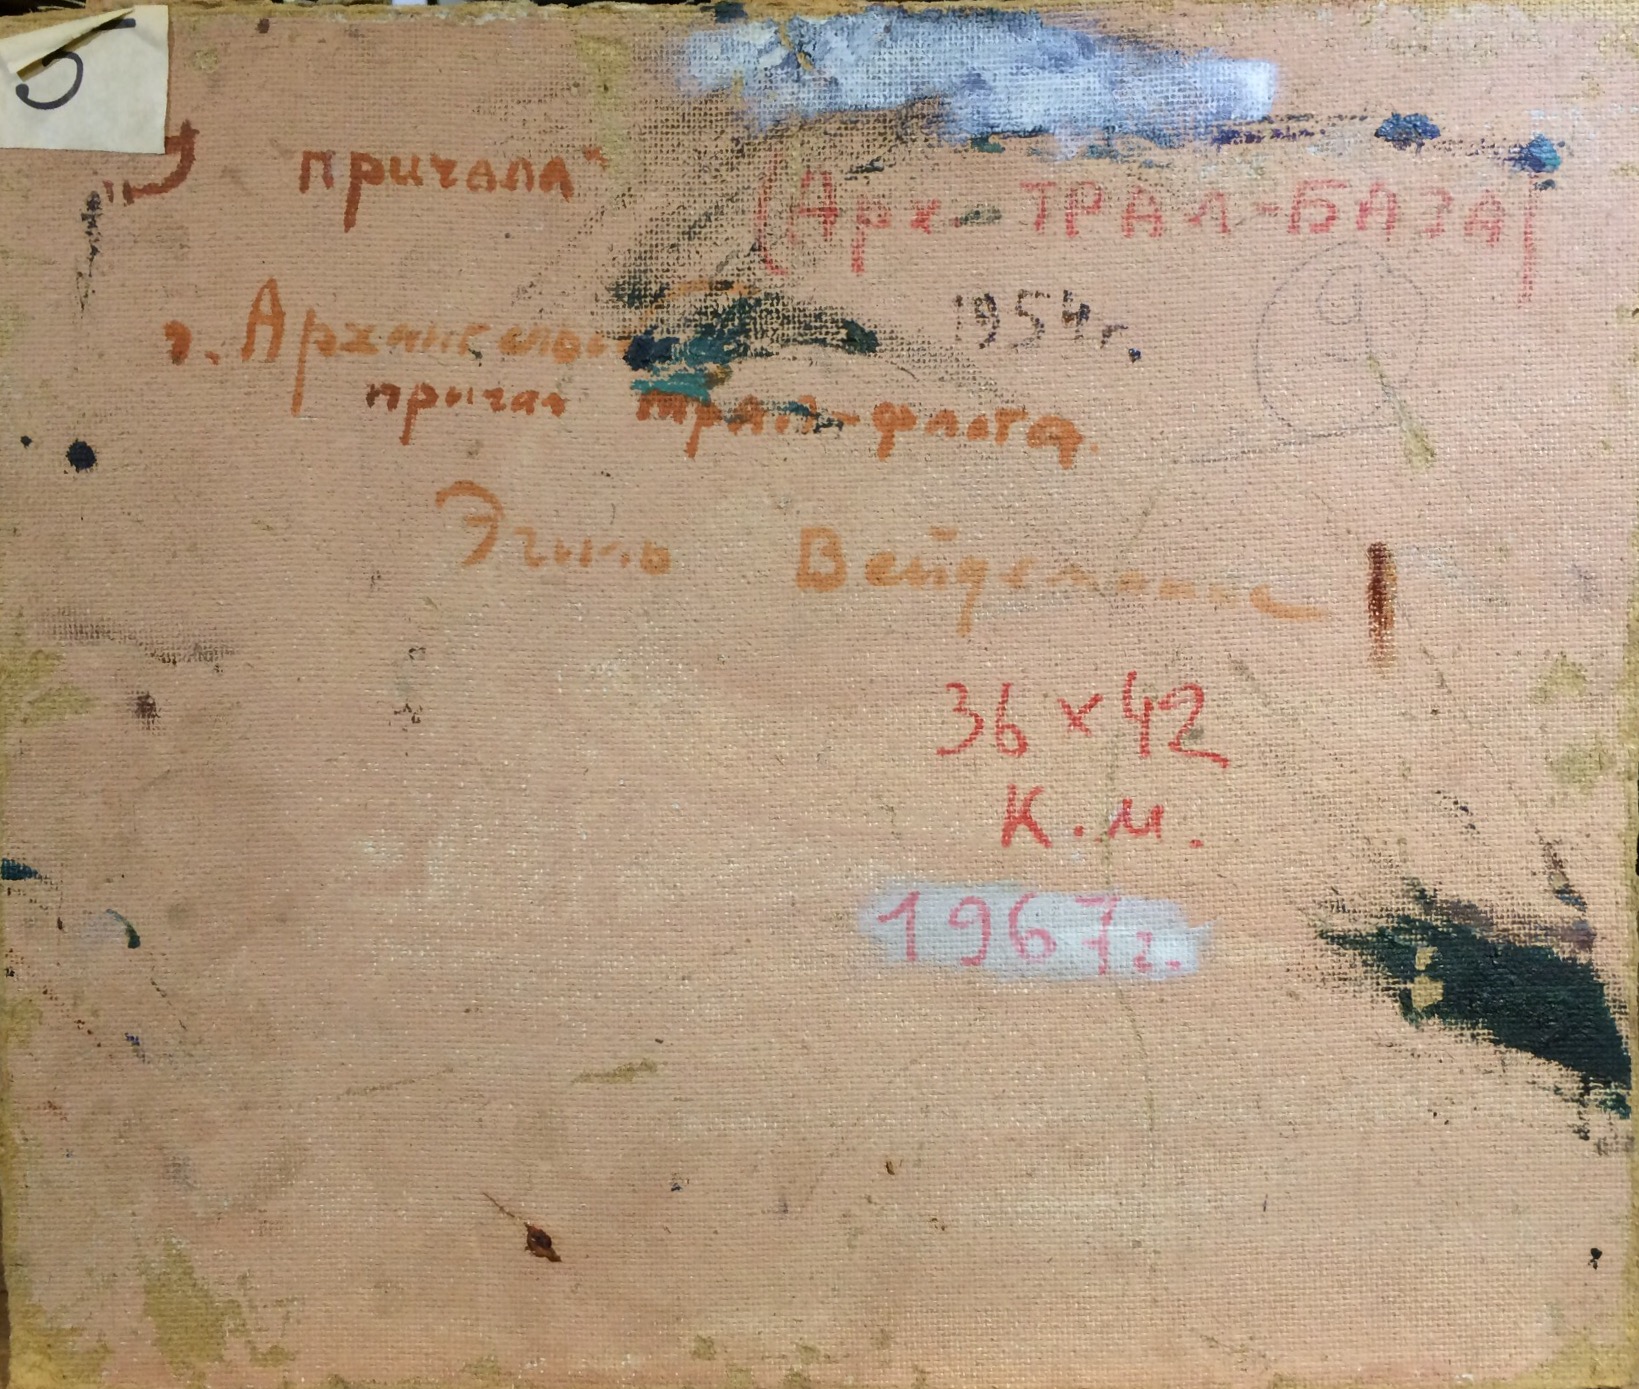 5
„У причала“
(Арх-ТРАЛ-БАЗА)
1954г.
г. Архангельск
причал трал-флота.
Эгиль Вейдеманис
36×42
К.м.
1967г.